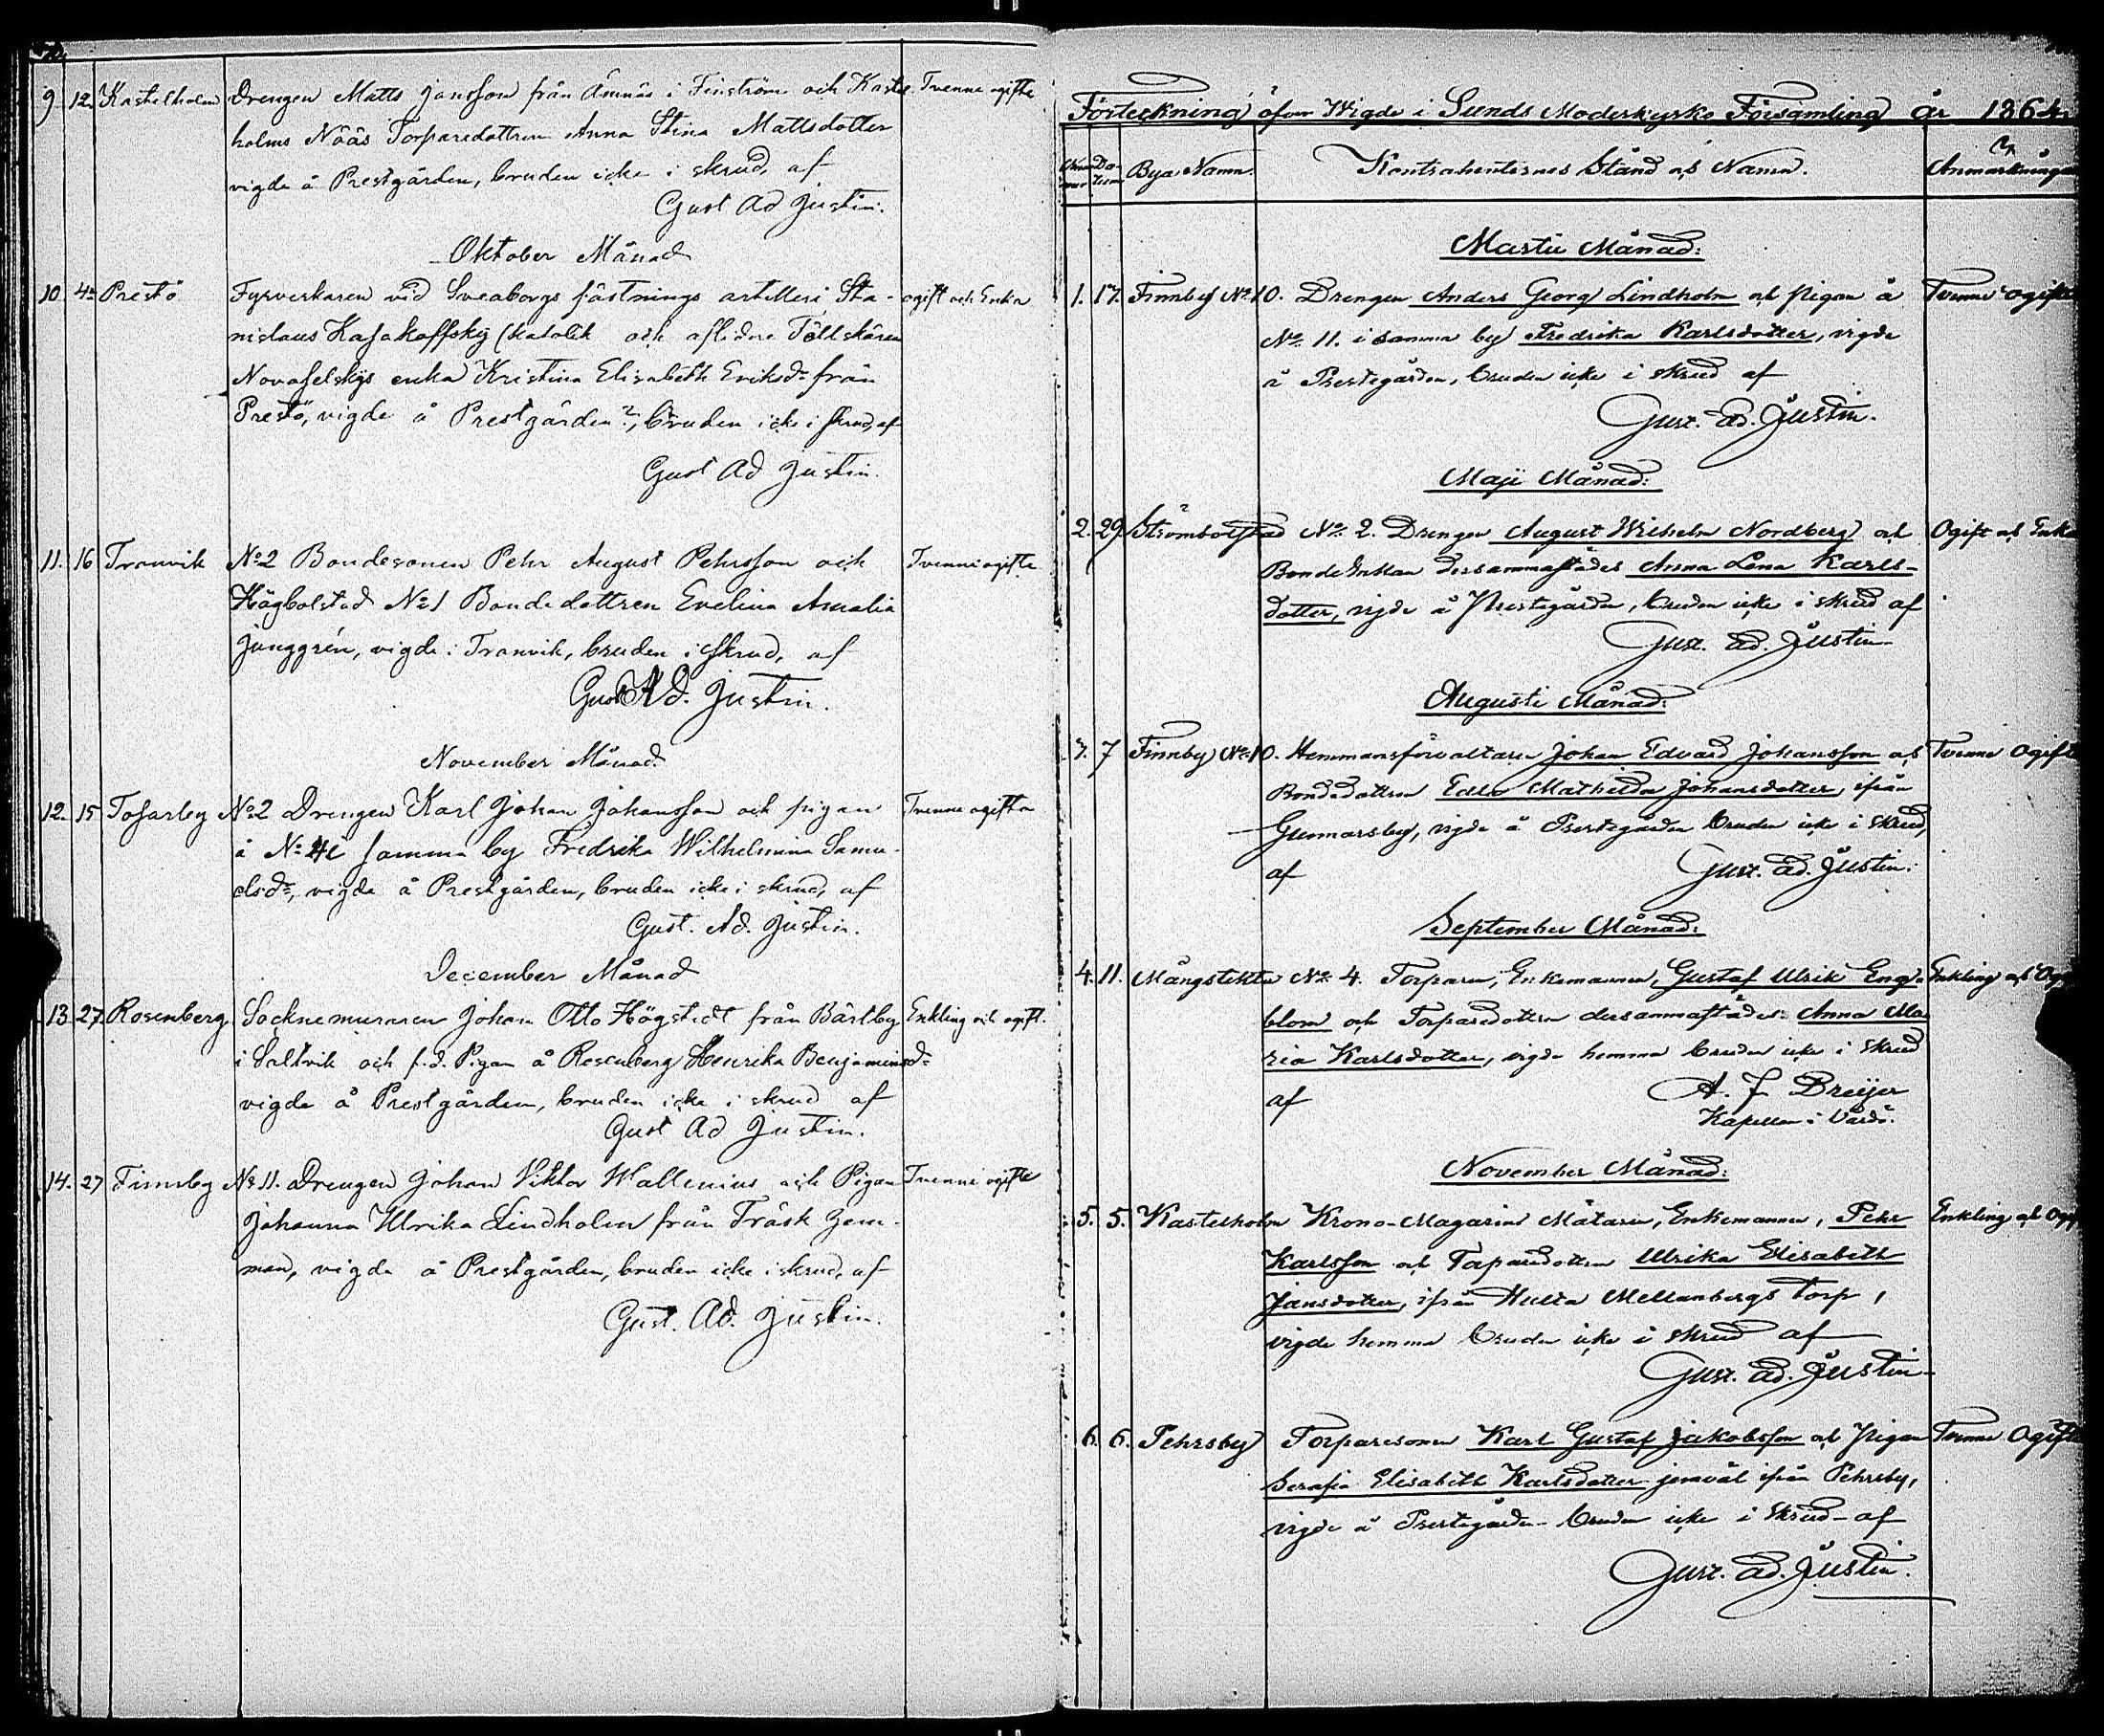 9 12. Kastelholm Drengen Matts Jansson från Ämnäs i Finström och Kastel- Tvenne ogifte
holms Nääs Torparedottren Anna Stina Mattsdotter
vigde å Prestgården, bruden icke i skrud, af
Gust Ad Justin.
Oktober Månad
10 4de Prestö Fyrverkaren vid Sveaborgs fästnings artilleri Sta- ogift och Enka
nislaus Kasakoffsky (katolik och aflidne Fältskären
Novaselskys enka Kristina Elisabeth Eriksdr från
Prestö, vigde å Prestgården?, bruden icke i skrud, af
Gust Ad Justin.
11. 16 Tranvik No 2 Bondesonen Pehr August Pehrsson och Tvenne ogifte
Högbolstad No 1 Bondedottren Evelina Amalia
Junggrén, vigde i Tranvik, bruden i skrud, af
Gust Ad. Justin.
November Månad
12. 15 Tosarby No 2 Drengen Karl Johan Johansson och pigan Tvenne ogifta
å No 4 i samma by Fredrika Wilhelmina Samu-
elsdr, vigde å Prestgården, bruden icke i skrud, af
Gust. Ad. Justin.
December Månad
13 27 Rosenberg Socknemuraren Johan Otto Högstedt från Bärtby Enkling och ogift.
i Saltvik och f.d. Pigan å Rosenberg Henrika Benjaminsdr
vigde å Prestgården, bruden icke i skrud af
Gust Ad Justin.
14. 27 Finnby No 11. Drengen Johan Viktor Wallenius och Pigan Tvenne ogifte
Johanna Ulrika Lindholm från Träsk Gom-
man, vigde å Prestgården, bruden icke i skrud, af
Gust. Ad. Justin.
Förteckning öfver Wigde i Sunds Moderkyrko Församling År 1864.
Nummer Datum Bya Namn. Kontrahenternes Stånd och Namn. Anmärkningar
Martii Månad:
1. 17. Finnby No. 10. Drengen Anders Georg Lindholm och pigan å Tvenne ogifte
No. 11. i samma by Fredrika Karlsdotter, vigde
å Prestegården, bruden icke i skrud af
Gust. Ad. Justin.
Maji Månad:
2. 29. Strömbolstad No. 2. Drengen August Wilhelm Nordberg och Ogift och Enka
BondeEnkan dersammastädes Anna Lena Karls-
dotter, vigde å Prestegården, bruden icke i skrud af
Gust. Ad. Justin
Augusti Månad:
3. 7 Finnby No. 10. Hemmansförvaltaren Johan Edvard Johansson och Tvenne Ogifte
Bondedottren Edla Mathilda Johansdotter, ifrån
Gunnarsby, vigde å Prestegården bruden icke i skrud,
af Gust. Ad. Justin.
September Månad:
4. 11. Mångstekta No. 4. Torparen, Enkemannen, Gustaf Ulrik Eng- Enkling och Og
blom och Torparedottren dersammastädes: Anna Ma-
ria Karlsdotter, vigde hemma bruden icke i skrud
af A. F. Dreijer
Kapellan i Vårdö.
November Månad:
5. 5. Kastelholm Krono-Magasins Mätaren, Enkemannen, Pehr Enkling och Og
Karlsson och Torparedottren Ulrika Elisabeth
Jansdotter, ifrån Hulta Mellanbergs torp,
vigde hemma bruden icke i skrud af
Gust. Ad. Justin
6. 6. Pehrsby Torparesonen Karl Gustaf Jakobsson och Pigan Tvenne Ogifte
Serafia Elisabeth Karlsdotter jemväl ifrån Pehrsby,
vigde å Prestegården bruden icke i skrud af
Gust. Ad. Justin.